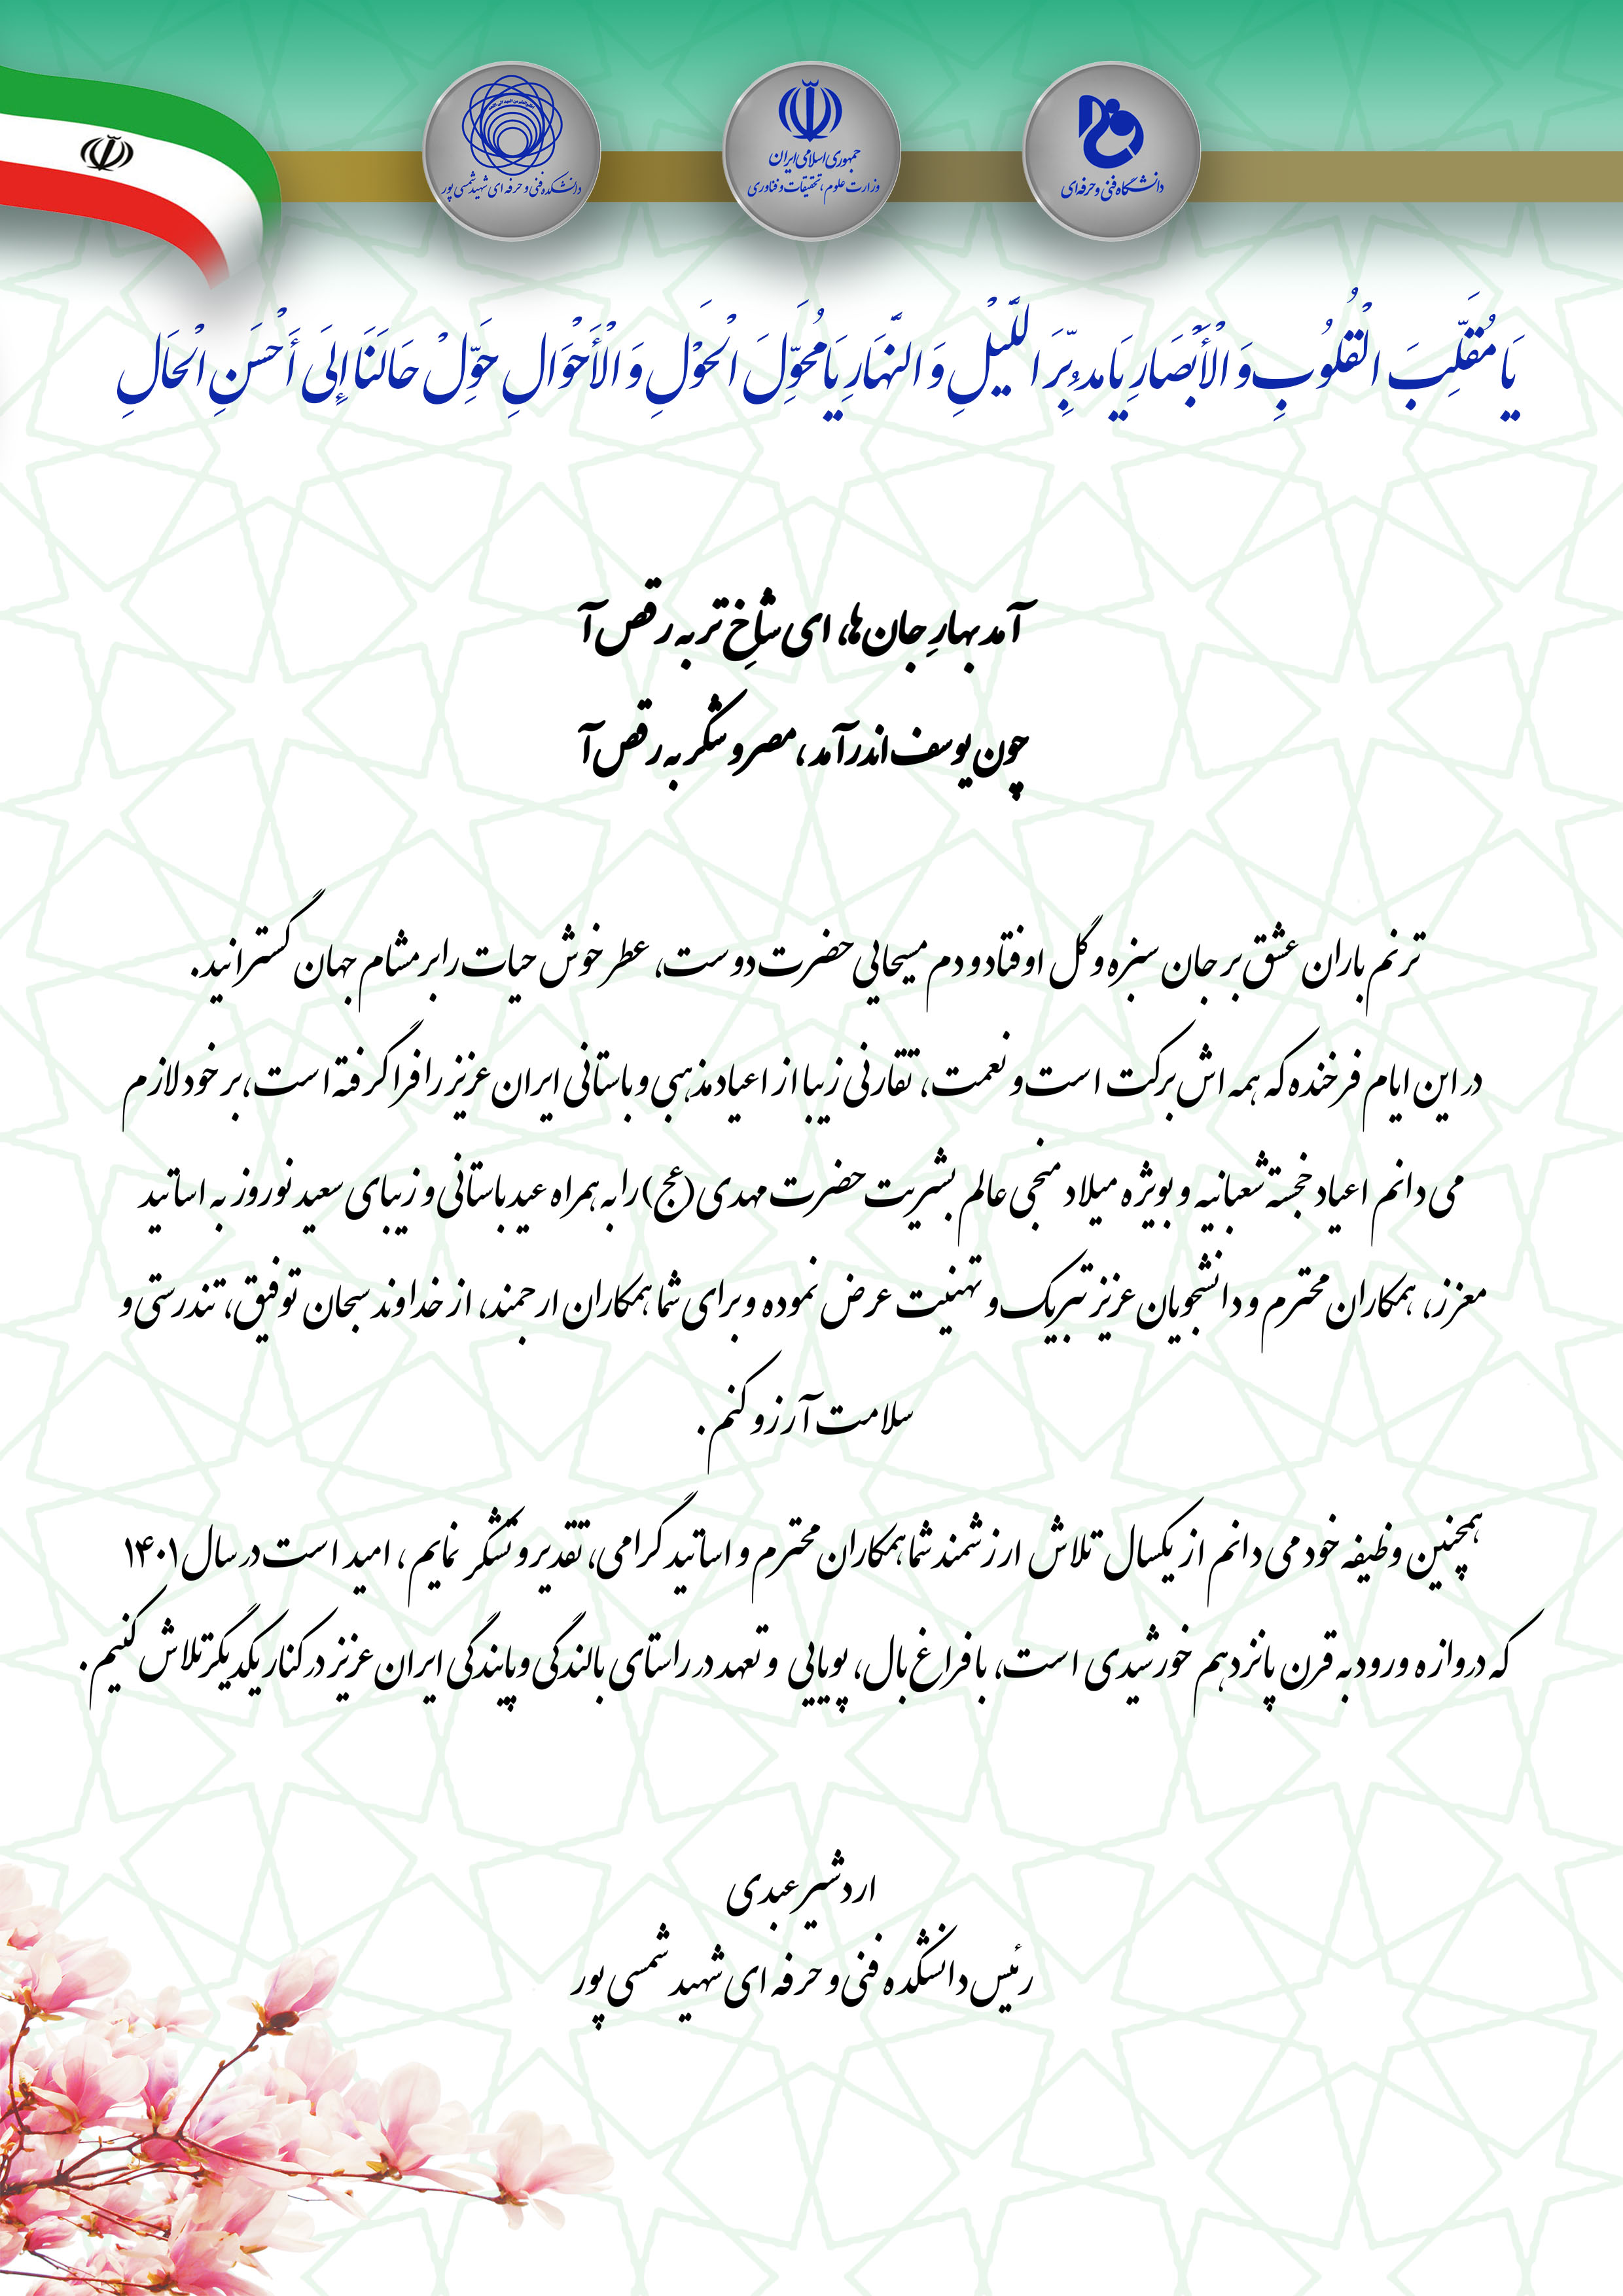 دانشگاه فنی و حرفه‌ای
جمهوری اسلامی ایران
وزارت علوم، تحقیقات و فناوری
دانشکده فنی و حرفه ای شهید شمسی پور
يَا مُقَلِّبَ الْقُلُوبِ وَ الْأَبْصَارِ يَا مدبِّرَ اللَّيْلِ وَ النَّهَارِ يَا مُحَوِّلَ الْحَوْلِ وَ الْأَحْوَالِ حَوِّلْ حَالَنَا إِلَى أَحْسَنِ الْحَالِ
آمد بهارِ جان‌ها، ای شاخِ تر به رقص آ
چون یوسف اندر آمد، مصر و شکر به رقص آ
ترنم باران عشق بر جان سبزه و گل اوفتاد و دم مسیحایی حضرت دوست، عطر خوش حیات را بر مشام جهان گسترانید.
در این ایام فرخنده که همه اش برکت است و نعمت، تقارنی زیبا از اعیاد مذهبی و باستانی ایران عزیز را فرا گرفته است، بر خود لازم
می دانم اعیاد خجسته شعبانیه و بویژه میلاد منجی عالم بشریت حضرت مهدی (عج) را به همراه عید باستانی و زیبای سعید نوروز به اساتید
معزز، همکاران محترم و دانشجویان عزیز تبریک و تهنیت عرض نموده و برای شما همکاران ارجمند، از خداوند سبحان توفیق، تندرستی و
سلامت آرزو کنم.
همچنین وظیفه خود می دانم از یکسال تلاش ارزشمند شما همکاران محترم و اساتید گرامی، تقدیر و تشکر نمایم، امید است در سال ۱۴۰۱
که دروازه ورود به قرن پانزدهم خورشیدی است، با فراغ بال، پویایی و تعهد در راستای بالندگی و پایندگی ایران عزیز در کنار یکدیگر تلاش کنیم.
اردشیر عبدی
رئیس دانشکده فنی و حرفه ای شهید شمسی پور